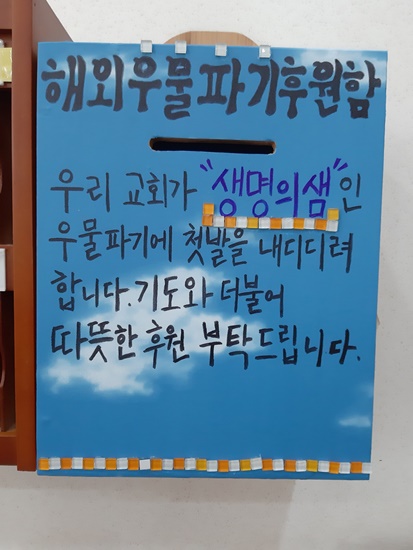 해외우물파기후원함
우리 교회가 "생명의샘"인
우물파기에 첫발을 내디디려
합니다. 기도와 더불어
따뜻한 후원 부탁드립니다.